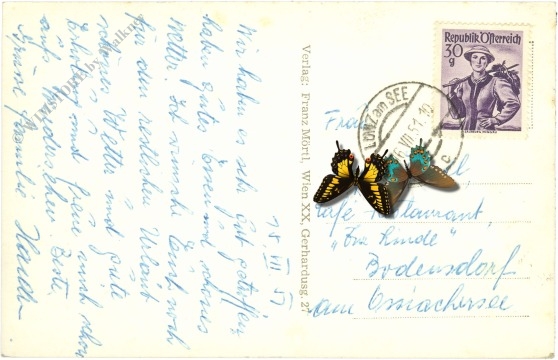 18. VII. 51
Wir haben es sehr gut getroffen,
haben gutes Essen und schönes
Wetter. Ich wünsche Euch noch
für den restlichen Urlaub
schönes Wetter und gute
Erholung und freue mich schon
aufs Wiedersehen. Beste
Grüsse Familie
Verlag: Franz Mörtl, Wien XX, Gerhardusg. 27
Republik Österreich
30
g
LUNZ am SEE
VII. 51
Frau
Bodensdorf
am Ossiachersee